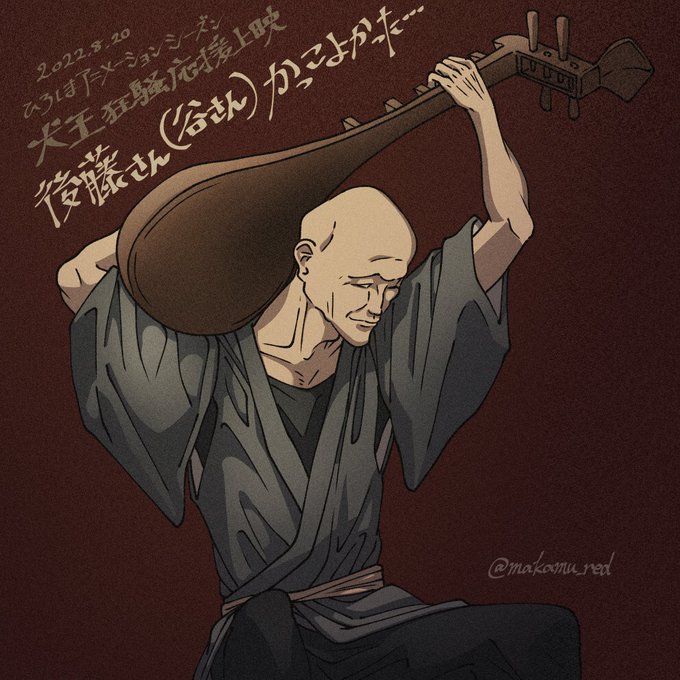 2022.8.20
ひろしまアニメーションシーズン
犬王 狂騒応援上映
後藤さん(谷さん)かっこよかった…
@makamu_red